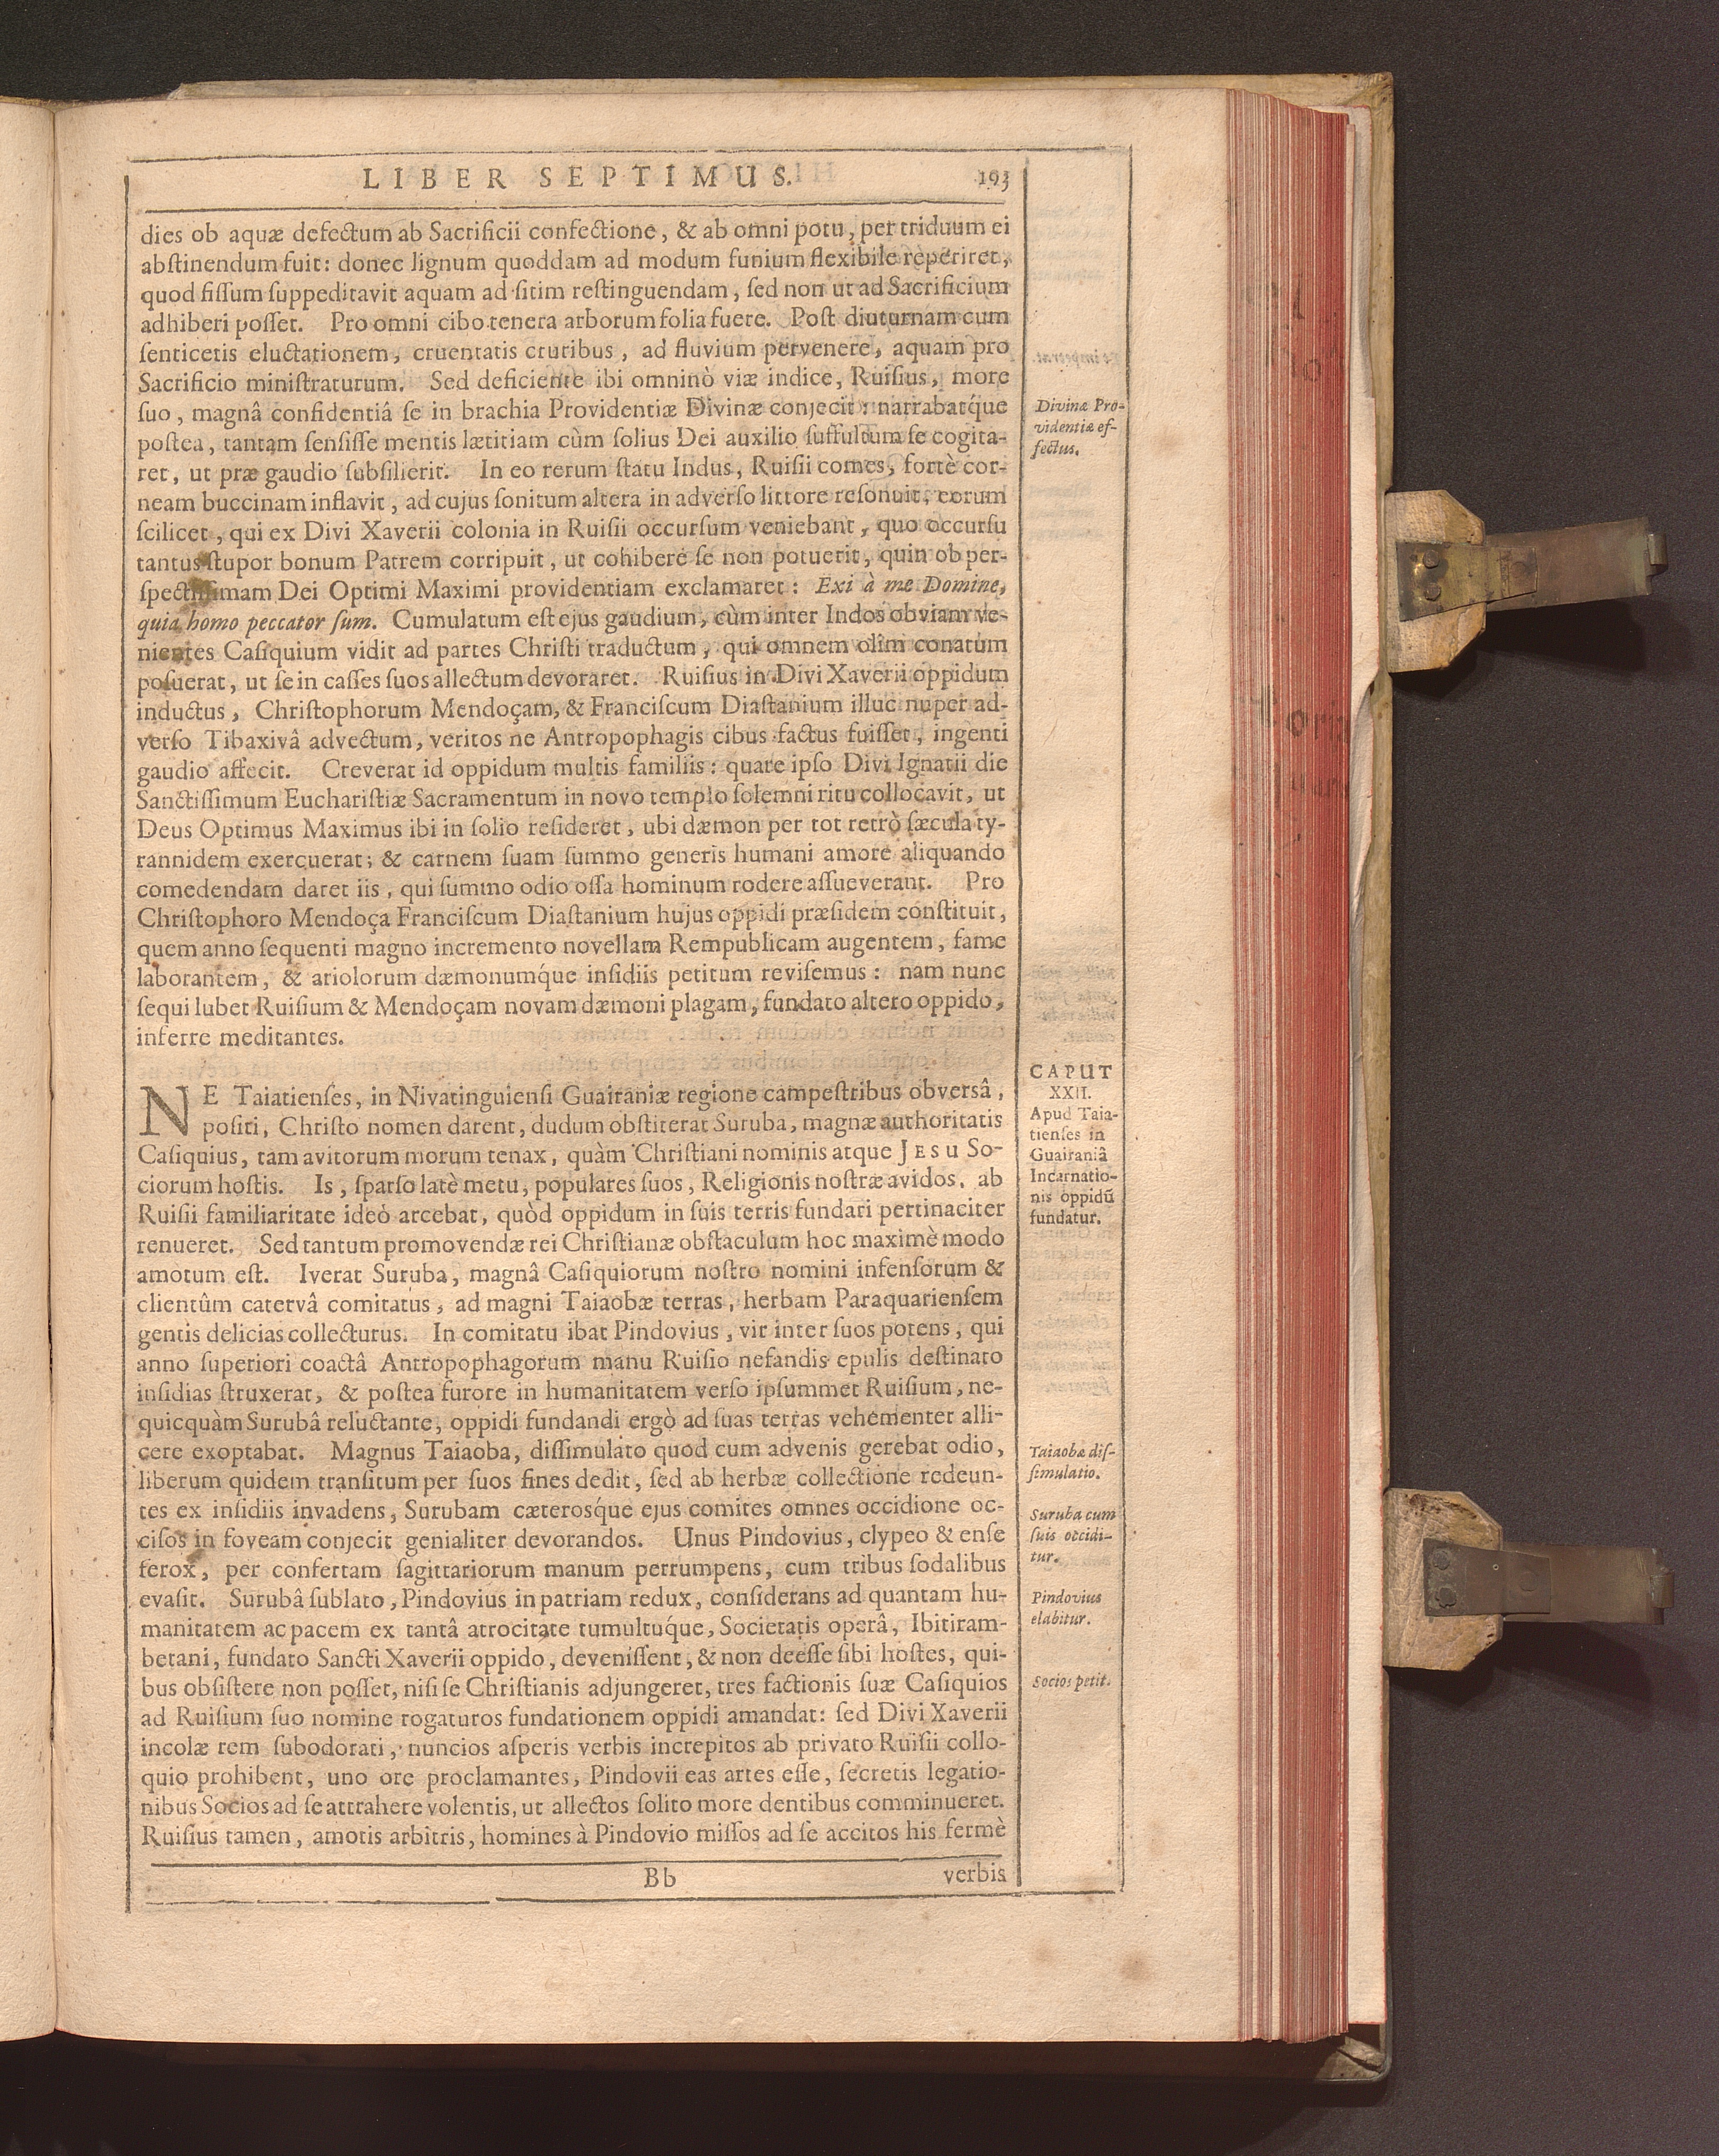 LIBER SEPTIMUS. 193
dies ob aquæ defectum ab Sacrificii confectione, & ab omni potu, per triduum ei
abſtinendum fuit: donec lignum quoddam ad modum funium flexibile reperiret,
quod fiſſum ſuppeditavit aquam ad ſitim reſtinguendam, ſed non ut ad Sacrificium
adhiberi poſſet. Pro omni cibo tenera arborum folia fuere. Poſt diuturnam cum
ſenticetis eluctationem, cruentatis cruribus, ad fluvium pervenere, aquam pro
Sacrificio miniſtraturum. Sed deficiente ibi omninò viæ indice, Ruiſius, more
ſuo, magnâ confidentiâ ſe in brachia Providentiæ Divinæ conjecit: narrabatq́ue
poſtea, tantam ſenſiſſe mentis lætitiam cùm ſolius Dei auxilio ſuffultum ſe cogita-
ret, ut præ gaudio ſubſilierit. In eo rerum ſtatu Indus, Ruiſii comes, fortè cor-
neam buccinam inflavit, ad cujus ſonitum altera in adverſo littore reſonuit, eorum
ſcilicet, qui ex Divi Xaverii colonia in Ruiſii occurſum veniebant, quo occurſu
tantus ſtupor bonum Patrem corripuit, ut cohibere ſe non potuerit, quin ob per-
ſpectiſſimam Dei Optimi Maximi providentiam exclamaret: Exi à me Domine,
quia homo peccator ſum. Cumulatum eſt ejus gaudium, cùm inter Indos obviam ve-
nientes Caſiquium vidit ad partes Chriſti traductum, qui omnem olim conatum
poſuerat, ut ſe in caſſes ſuos allectum devoraret. Ruiſius in Divi Xaverii oppidum
inductus, Chriſtophorum Mendoçam, & Franciſcum Diaſtanium illuc nuper ad-
verſo Tibaxivâ advectum, veritos ne Antropophagis cibus factus fuiſſet, ingenti
gaudio affecit. Creverat id oppidum multis familiis: quare ipſo Divi Ignatii die
Sanctiſſimum Euchariſtiæ Sacramentum in novo templo ſolemni ritu collocavit, ut
Deus Optimus Maximus ibi in ſolio reſideret, ubi dæmon per tot retrò ſæcula ty-
rannidem exercuerat; & carnem ſuam ſummo generis humani amore aliquando
comedendam daret iis, qui ſummo odio oſſa hominum rodere aſſueverant. Pro
Chriſtophoro Mendoça Franciſcum Diaſtanium hujus oppidi præſidem conſtituit,
quem anno ſequenti magno incremento novellam Rempublicam augentem, fame
laborantem, & ariolorum dæmonumq́ue inſidiis petitum reviſemus: nam nunc
ſequi lubet Ruiſium & Mendoçam novam dæmoni plagam, fundato altero oppido,
inferre meditantes.
Divinæ Pro-
videntiæ ef-
fectus.
CAPUT
XXII.
Apud Taia-
tienſes in
Guairaniâ
Incarnatio-
nis oppidũ
fundatur.
NE Taiatienſes, in Nivatinguienſi Guairaniæ regione campeſtribus obverſâ,
poſiti, Chriſto nomen darent, dudum obſtiterat Suruba, magnæ authoritatis
Caſiquius, tam avitorum morum tenax, quàm Chriſtiani nominis atque JESU So-
ciorum hoſtis. Is, ſparſo latè metu, populares ſuos, Religionis noſtræ avidos, ab
Ruiſii familiaritate ideò arcebat, quòd oppidum in ſuis terris fundari pertinaciter
renueret. Sed tantum promovendæ rei Chriſtianæ obſtaculum hoc maximè modo
amotum eſt. Iverat Suruba, magnâ Caſiquiorum noſtro nomini infenſorum &
clientûm catervâ comitatus, ad magni Taiaobæ terras, herbam Paraquarienſem
gentis delicias collecturus. In comitatu ibat Pindovius, vir inter ſuos potens, qui
anno ſuperiori coactâ Antropophagorum manu Ruiſio nefandis epulis deſtinato
inſidias ſtruxerat, & poſtea furore in humanitatem verſo ipſummet Ruiſium, ne-
quicquàm Surubâ reluctante, oppidi fundandi ergò ad ſuas terras vehementer alli-
cere exoptabat. Magnus Taiaoba, diſſimulato quod cum advenis gerebat odio,
liberum quidem tranſitum per ſuos fines dedit, ſed ab herbæ collectione redeun-
tes ex inſidiis invadens, Surubam cæteroſq́ue ejus comites omnes occidione oc-
ciſos in foveam conjecit genialiter devorandos. Unus Pindovius, clypeo & enſe
ferox, per confertam ſagittariorum manum perrumpens, cum tribus ſodalibus
evaſit. Surubâ ſublato, Pindovius in patriam redux, conſiderans ad quantam hu-
manitatem ac pacem ex tantâ atrocitate tumultuq́ue, Societatis operâ, Ibitiram-
betani, fundato Sancti Xaverii oppido, deveniſſent, & non deeſſe ſibi hoſtes, qui-
bus obſiſtere non poſſet, niſi ſe Chriſtianis adjungeret, tres factionis ſuæ Caſiquios
ad Ruiſium ſuo nomine rogaturos fundationem oppidi amandat: ſed Divi Xaverii
incolæ rem ſubodorati, nuncios aſperis verbis increpitos ab privato Ruiſii collo-
quio prohibent, uno ore proclamantes, Pindovii eas artes eſſe, ſecretis legatio-
nibus Socios ad ſe attrahere volentis, ut allectos ſolito more dentibus comminueret.
Ruiſius tamen, amotis arbitris, homines à Pindovio miſſos ad ſe accitos his fermè
Taiaobæ diſ-
ſimulatio.
Suruba cum
ſuis occidi-
tur.
Pindovius
elabitur.
Socios petit.
Bb verbis